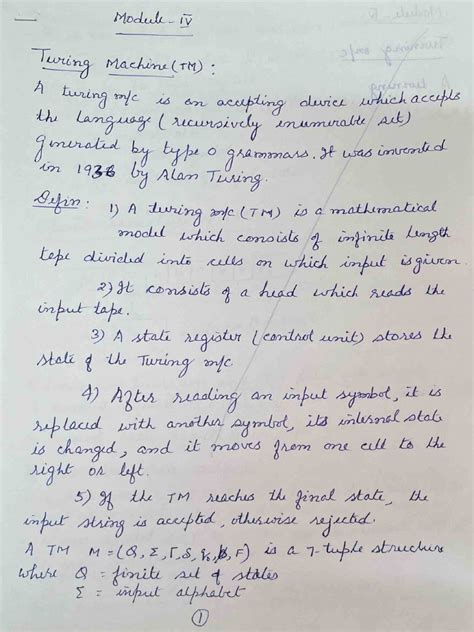 Module - IV
Turing Machine (TM) :
A turing m/c is an accepting device which accepts
the language (recursively enumerable set)
generated by type 0 grammars. It was invented
in 1936 by Alan Turing.
Defin : 1) A turing m/c (TM) is a mathematical
model which consists of infinite length
tape divided into cells on which input is given.
2) It consists of a head which reads the
input tape.
3) A state register (control unit) stores the
state of the Turing m/c.
4) After reading an input symbol, it is
replaced with another symbol, its internal state
is changed, and it moves from one cell to the
right or left.
5) If the TM reaches the final state, the
input string is accepted, otherwise rejected.
A TM M = (Q, Σ, Γ, δ, q₀, F) is a 7-tuple structure
where Q = finite set of states
Σ = input alphabet
1